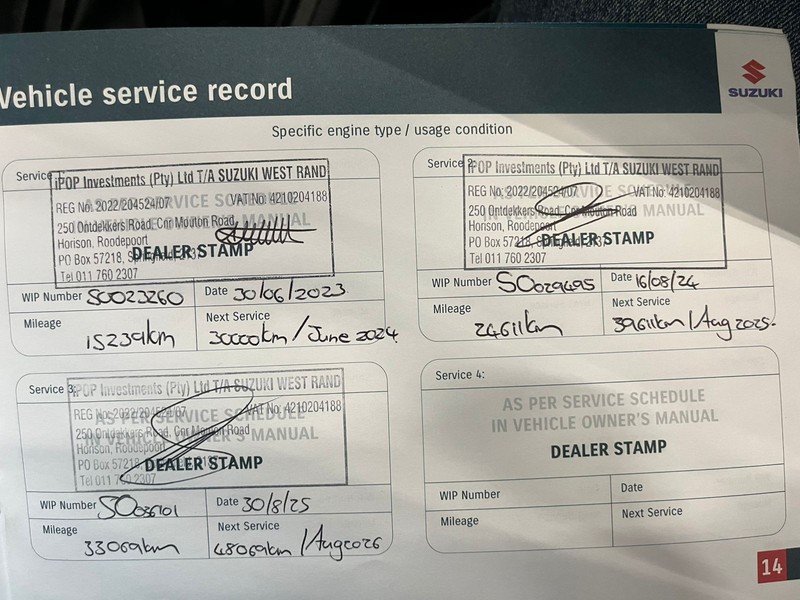 Vehicle service record
SUZUKI
Specific engine type / usage condition
Service
iPOP Investments (Pty) Ltd T/A SUZUKI WEST RAND
REG No: 2022/204524/07 VAT No: 4210204188
250 Ontdekkers Road, Cnr Mouton Road,
Horison, Roodepoort
PO Box 57218,
Tel 011 760 2307
SERVICE SCHEDULE
MANUAL
DEALER STAMP
WIP Number SO023260 Date 30/06/2023
Mileage 15239km
Next Service 30000km / June 2024
Service 2:
iPOP Investments (Pty) Ltd T/A SUZUKI WEST RAND
REG No: 2022/204524/07 VAT No: 4210204188
250 Ontdekkers Road, Cnr Mouton Road
Horison, Roodepoort
PO Box 57218,
Tel 011 760 2307
MANUAL
DEALER STAMP
WIP Number SO029695 Date 16/08/24
Mileage 24611km
Next Service 39611km / Aug 2025.
Service 3:
iPOP Investments (Pty) Ltd T/A SUZUKI WEST RAND
REG No: 2022/204524/07 VAT No: 4210204188
250 Ontdekkers Road, Cnr Mouton Road
Horison, Roodepoort
PO Box 57218,
Tel 011 760 2307
AS PER SERVICE SCHEDULE
IN VEHICLE OWNER'S MANUAL
DEALER STAMP
WIP Number Date 30/8/25
Mileage 33069km
Next Service 48069km / Aug 2026
Service 4:
AS PER SERVICE SCHEDULE
IN VEHICLE OWNER'S MANUAL
DEALER STAMP
WIP Number Date
Mileage Next Service
14